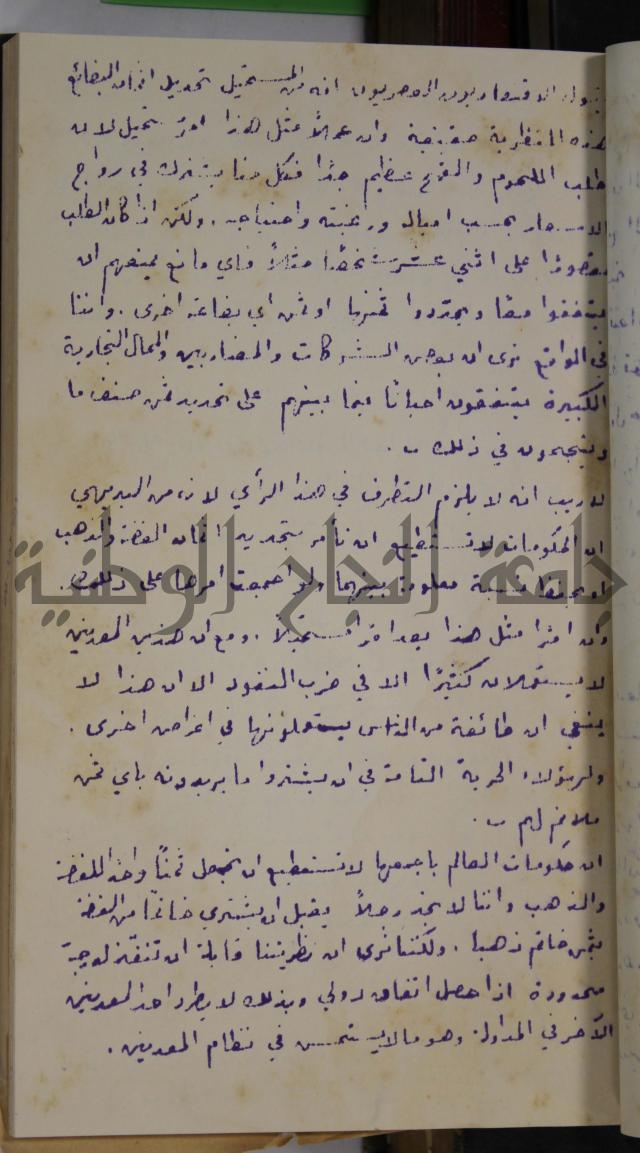 يقول الاقتصاديون العصريون انه من المستحيل تحديد اثمان البضائع
هذه النظرية حقيقية وان عملاً مثل هذا امر مستحيل لان
طلب اللحوم والقمح عظيم جدًا فكل منا يشترك في رواج
الاسعار بحسب امياله ورغبته واحتياجه . ولكن اذا كان الطلب
مقصورًا على اثني عشر شخصًا مثلاً فأي مانع يمنعهم ان
يتفقوا معًا ويحددوا ثمنها او ثمن اي بضاعة اخرى . واننا
في الواقع نرى ان بعض الشركات والمضاربين والمحال التجارية
الكبيرة يتفقون احيانًا فيما بينهم على تحديد ثمن صنف ما
وينجحون في ذلك .
لا ريب انه لا يلزم التطرف في هذا الرأي لانه من البديهي
ان الحكومات لا تستطيع ان تأمر بتحديد اثمان الفضة والذهب
او بحفظ نسبة معلومة بينهما ولو اجمعت امرها على ذلك .
وان امرًا مثل هذا يعد امرًا مستحيلاً . ومع ان هذين المعدنين
لا يستعملان كثيرًا الا في ضرب النقود الا ان هذا لا
ينفي ان طائفة من الناس يستعملونها في اغراض اخرى .
ولهؤلاء الحرية التامة في ان يشتروا ما يريدونه باي ثمن
ملائم لهم .
ان حكومات العالم باجمعها لا تستطيع ان تجعل ثمنًا واحدًا للفضة
والذهب واننا لا نجد رجلاً يقبل ان يشتري خاتمًا من الفضة
بثمن خاتم ذهبا . ولكننا نرى ان نظريتنا قابلة ان تنفذ لدرجة
محدودة اذا حصل اتفاق دولي وبذلك لا يطرد احد المعدنين
الآخر في المداولة وهو ما لا يستحسن في نظام المعدنين .
جامعة النجاح الوطنية